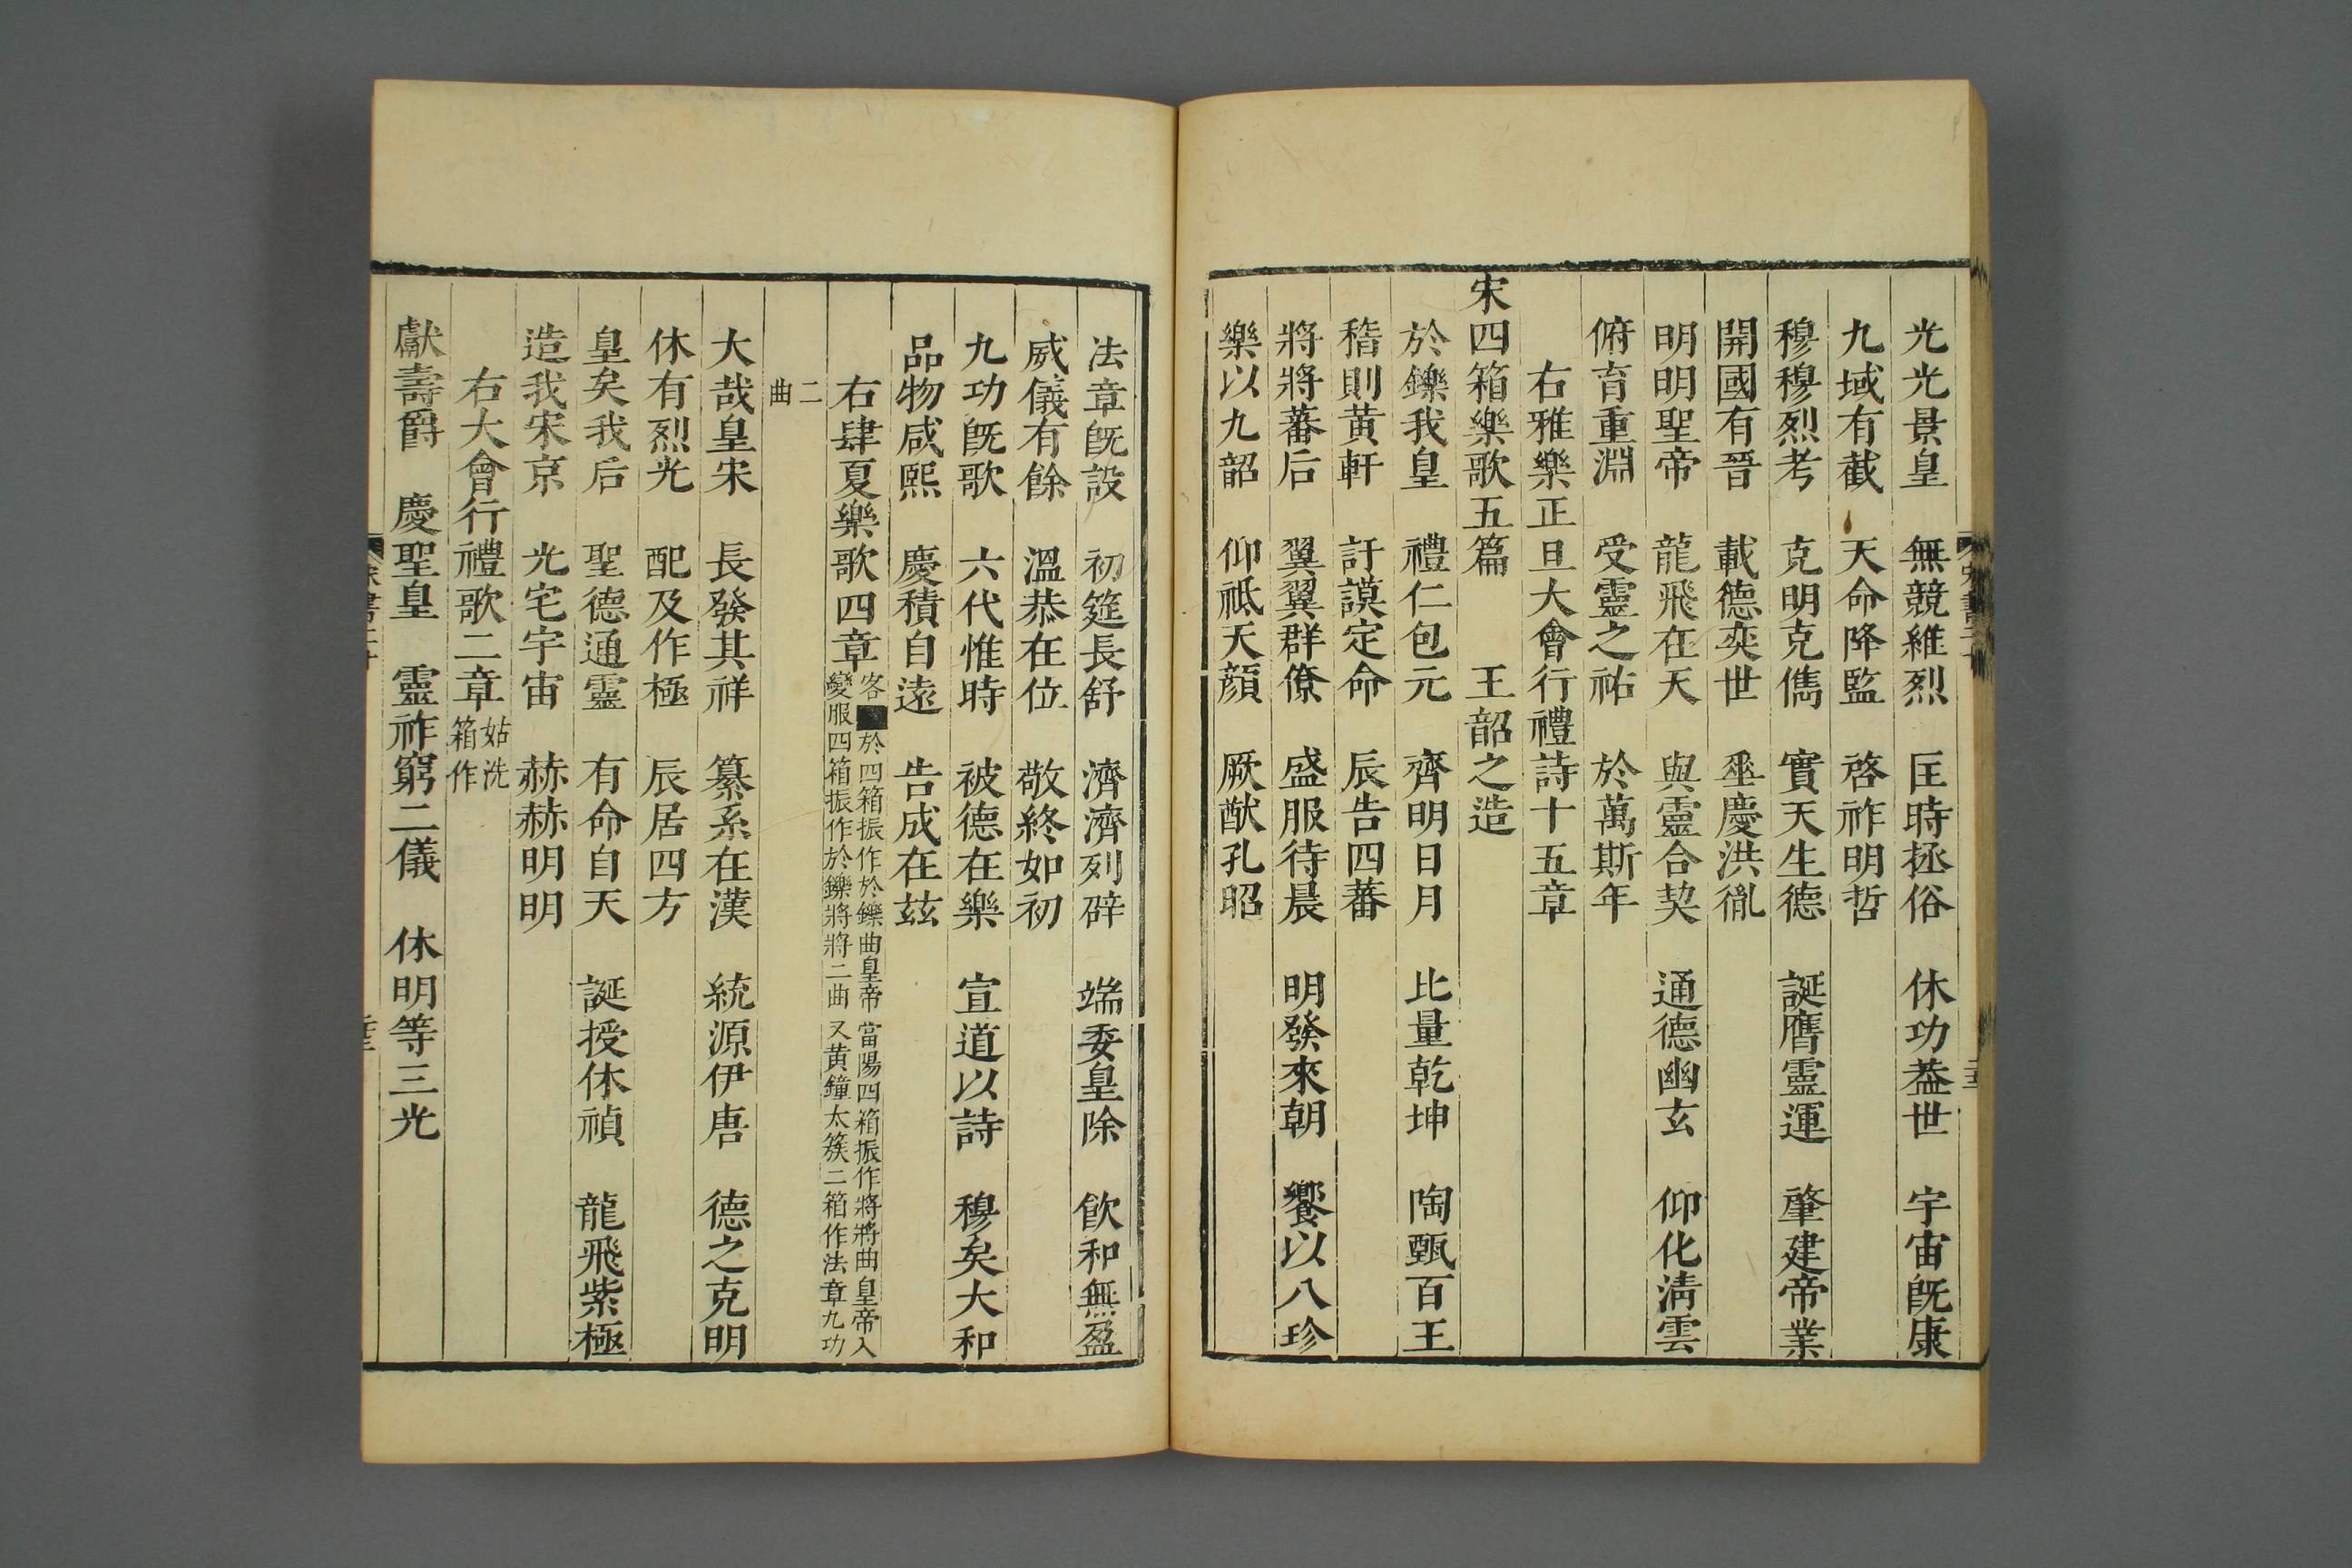 光光景皇　無競維烈　匡時拯俗　休功蓋世　宇宙旣康
九域有截　天命降監　啓祚明哲
穆穆烈考　克明克儁　實天生德　誕膺靈運　肇建帝業
開國有晉　載德奕世　垂慶洪胤
明明聖帝　龍飛在天　與靈合契　通德幽玄　仰化淸雲
俯育重淵　受靈之祐　於萬斯年
右雅樂正旦大會行禮詩十五章
宋四箱樂歌五篇　　王韶之造
於鑠我皇　禮仁包元　齊明日月　比量乾坤　陶甄百王
稽則黃軒　訏謨定命　辰告四蕃
將將蕃后　翼翼群僚　盛服待晨　明發來朝　饗以八珍
樂以九韶　仰祗天顏　厥猷孔昭
法章旣設　初筵長舒　濟濟列辟　端委皇除　飮和無盈
威儀有餘　溫恭在位　敬終如初
九功旣歌　六代惟時　被德在樂　宣道以詩　穆矣大和
品物咸熙　慶積自遠　告成在玆
右肆夏樂歌四章
客■於四箱振作於鑠曲皇帝當陽四箱振作將將曲皇帝入
變服四箱振作於鑠將將二曲又黃鐘太簇二箱作法章九功
二
曲
大哉皇宋　長發其祥　纂系在漢　統源伊唐　德之克明
休有烈光　配及作極　辰居四方
皇矣我后　聖德通靈　有命自天　誕授休禎　龍飛紫極
造我宋京　光宅宇宙　赫赫明明
右大會行禮歌二章
姑洗
箱作
獻壽爵　慶聖皇　靈祚窮二儀　休明等三光